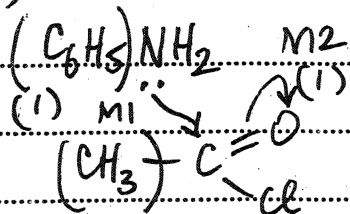 (C6H5)NH2 M2
(1) M1 (1)
(CH3)-C=O
Cl